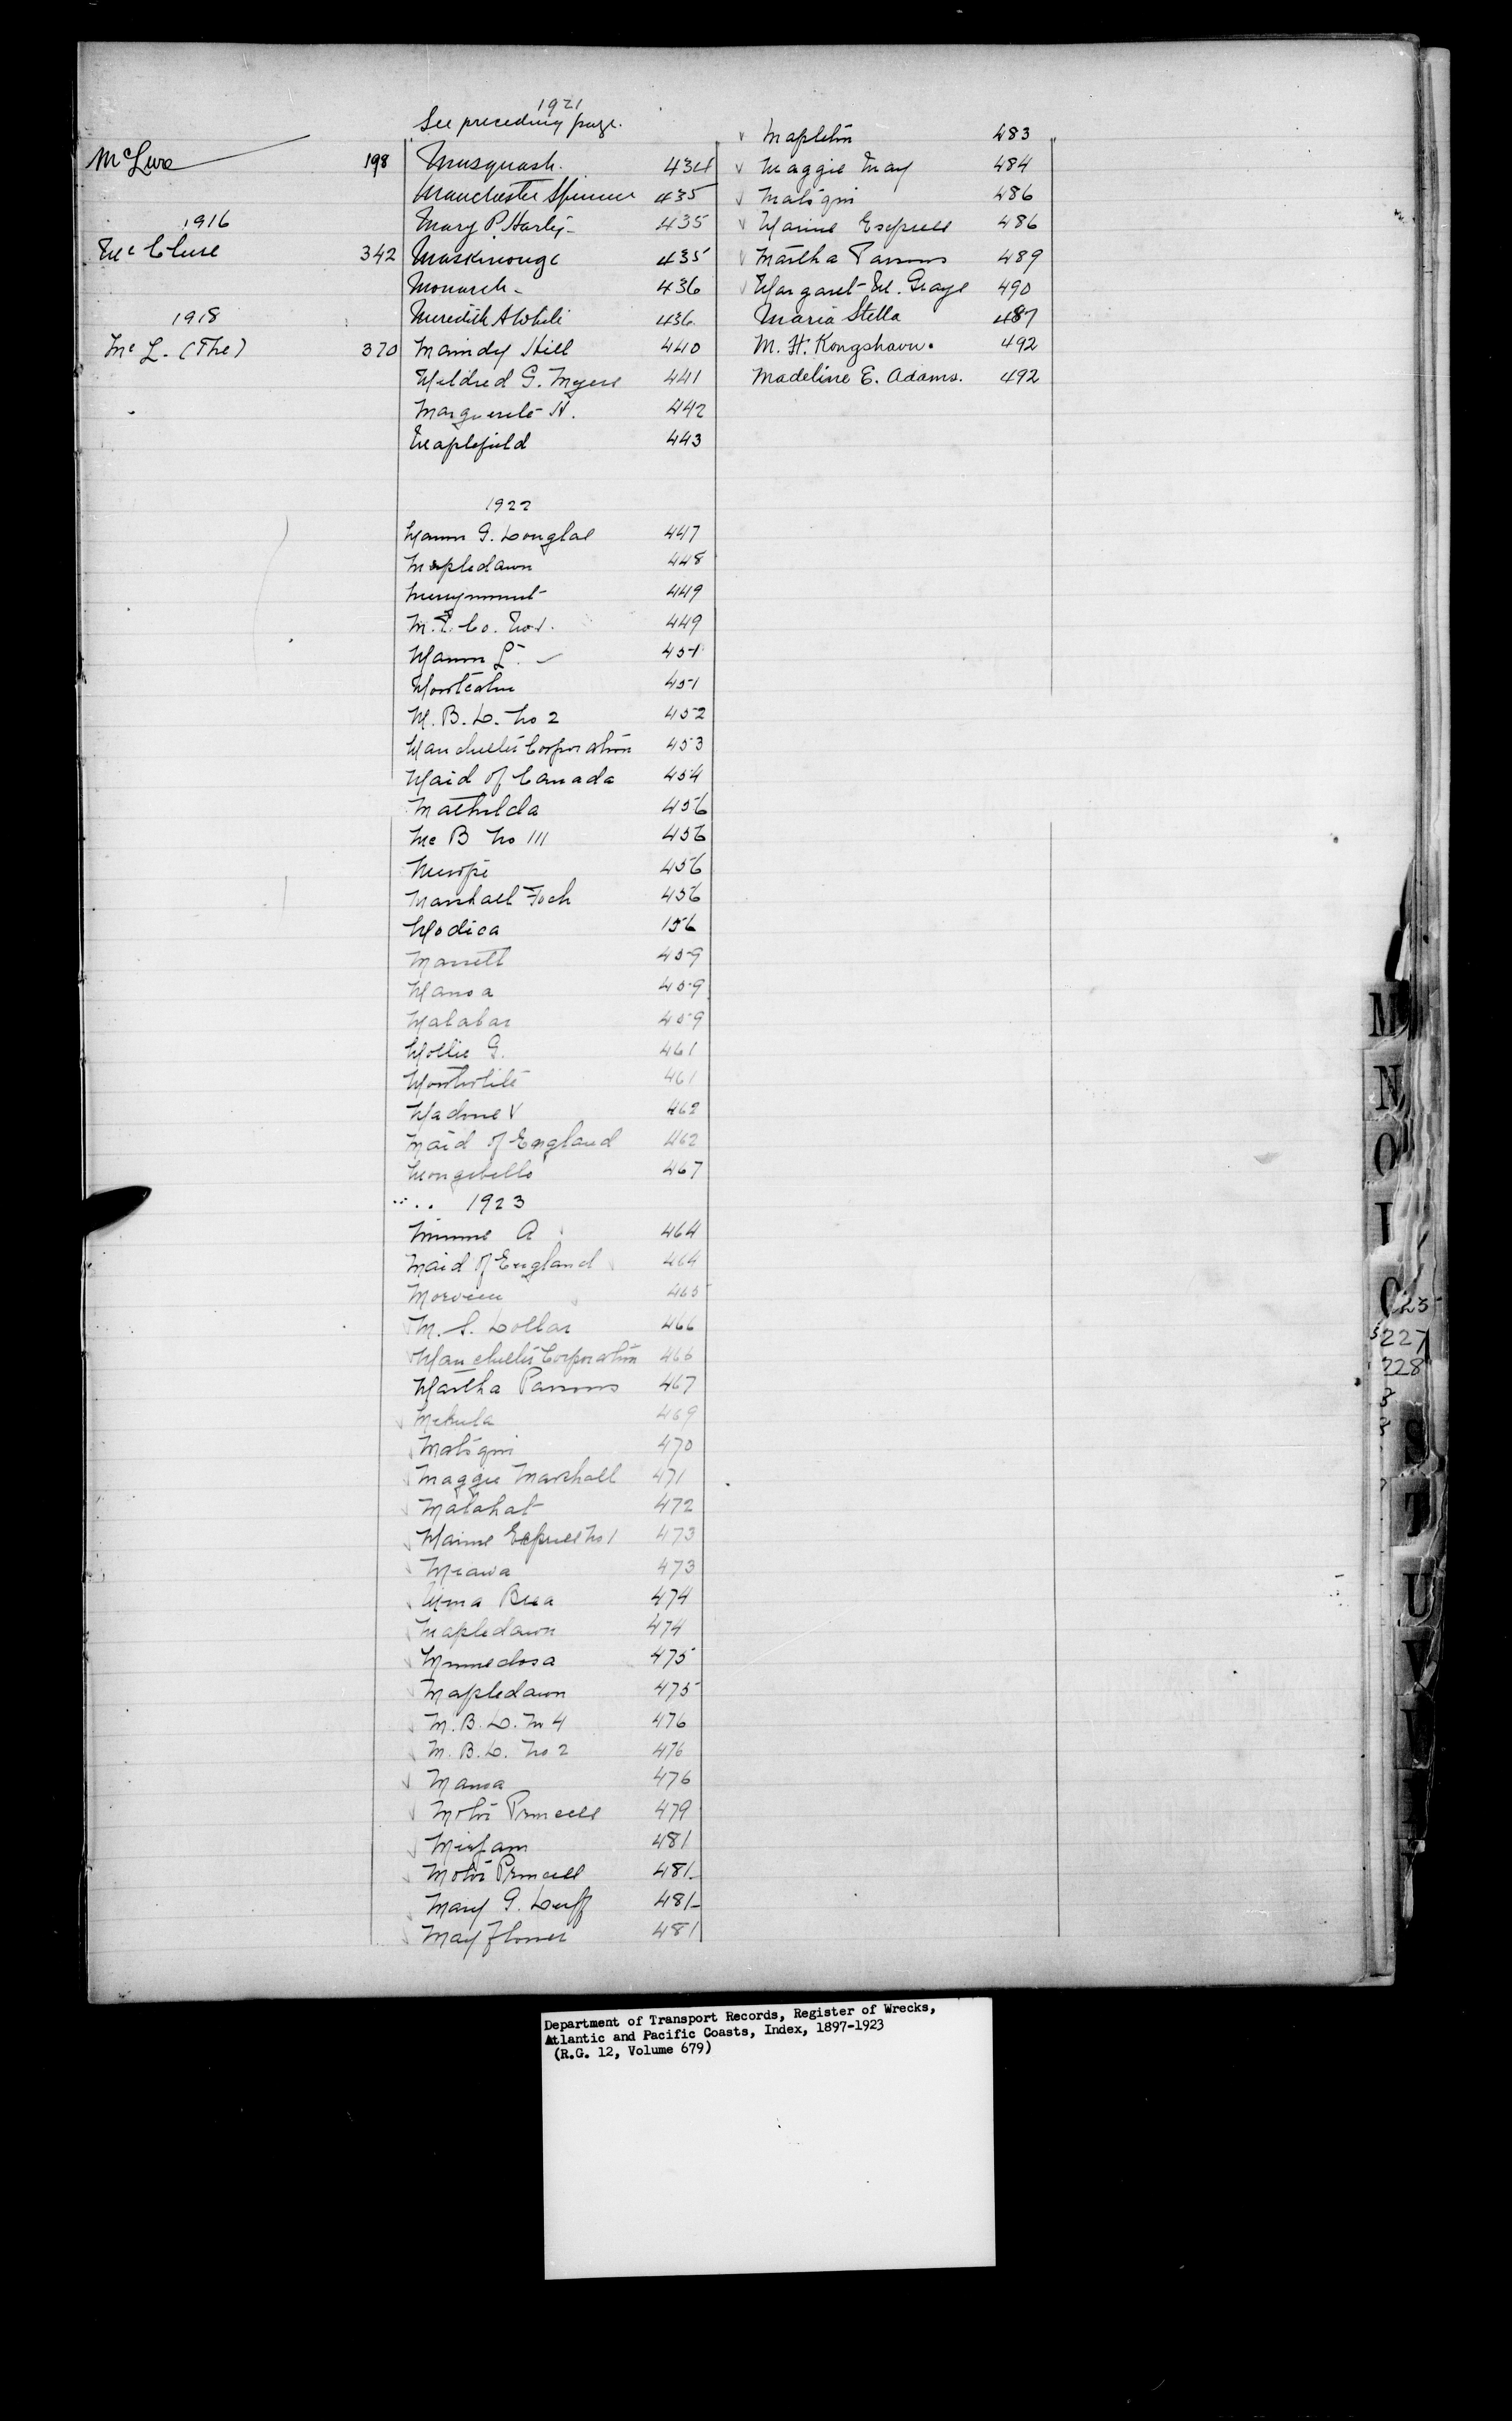 McLure 198
1916
McClure 342
1918
Mc L. (The) 370
1921
See preceding page.
Musquash. 434
Manchester Spinner 435
Mary P. Harty 435
Maskinonge 435
Monarch 436
Meredith A White 436
Maindy Hill 440
Mildred G. Myers 441
Marguerite H. 442
Maplefield 443
1922
G. Douglas 447
Mapledawn 448
Merrymount 449
M. E. Co. 449
L. 451
Montcalm 451
M. B. D. No 2 452
Manchester Corporation 453
Maid of Canada 454
Mathilda 456
Mc B No 111 456
456
Marshall Foch 456
Modica 156
Massett 459
Manoa 459
Malabar 459
Mollie G. 461
461
V 462
Maid of England 462
Mongibello 467
1923
Minnie A 464
Maid of England 464
Morvien 465
M. S. Dollar 466
Manchester Corporation 466
Martha Parsons 467
Makula 469
Matoqui 470
Maggie Marshall 471
Malahat 472
Marine Express No 1 473
Meawa 473
Mina Brea 474
Mapledawn 474
Minnedosa 475
Mapledawn 475
M. B. D. No 4 476
M. B. D. No 2 476
Manoa 476
Motor Princess 479
Mirfam 481
Motor Princess 481
Mary G. Duff 481
May Flower 481
Mapleton 483
Maggie May 484
Matoqui 486
Marine Express 486
Martha Parsons 489
Margaret M. Graye 490
Maria Stella 487
M. H. Kongshavn. 492
Madeline E. Adams. 492
M
N
O
S
T
U
V
227
228
Department of Transport Records, Register of Wrecks,
Atlantic and Pacific Coasts, Index, 1897-1923
(R.G. 12, Volume 679)